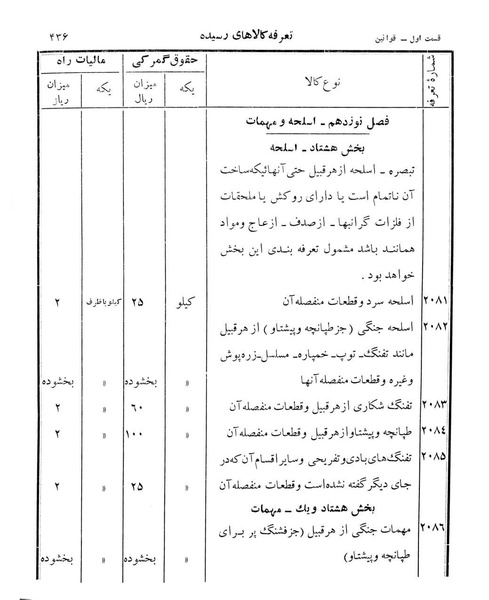 قسمت اول ــ قوانین
تعرفه کالاهای رسیده
۴۳۶
شمارهٔ تعرفه
نوع کالا
حقوق گمرکی
مالیات راه
یکه
میزان ریال
یکه
میزان ریال
فصل نوزدهم ــ اسلحه و مهمات
بخش هشتاد ــ اسلحه
تبصره ــ اسلحه از هر قبیل حتی آنهائیکه ساخت
آن ناتمام است یا دارای روکش یا ملحقات
از فلزات گرانبها ــ از صدف ــ از عاج و مواد
همانند باشد مشمول تعرفه بندی این بخش
خواهد بود .
۲۰۸۱ اسلحه سرد و قطعات منفصله آن کیلو ۲۵ کیلو با ظرف ۲
۲۰۸۲ اسلحه جنگی (جز طپانچه و پیشتاو) از هر قبیل
مانند تفنگ ــ توپ ــ خمپاره ــ مسلسل ــ زره پوش
وغیره و قطعات منفصله آنها » بخشوده » بخشوده
۲۰۸۳ تفنگ شکاری از هر قبیل و قطعات منفصله آن » ۶۰ » ۲
۲۰۸۴ طپانچه و پیشتاو از هر قبیل و قطعات منفصله آن » ۱۰۰ » ۲
۲۰۸۵ تفنگ های بادی و تفریحی و سایر اقسام آن که در
جای دیگر گفته نشده است و قطعات منفصله آن » ۲۵ » ۲
بخش هشتاد و یک ــ مهمات
۲۰۸۶ مهمات جنگی از هر قبیل (جز فشنگ پر برای
طپانچه و پیشتاو) » بخشوده » بخشوده